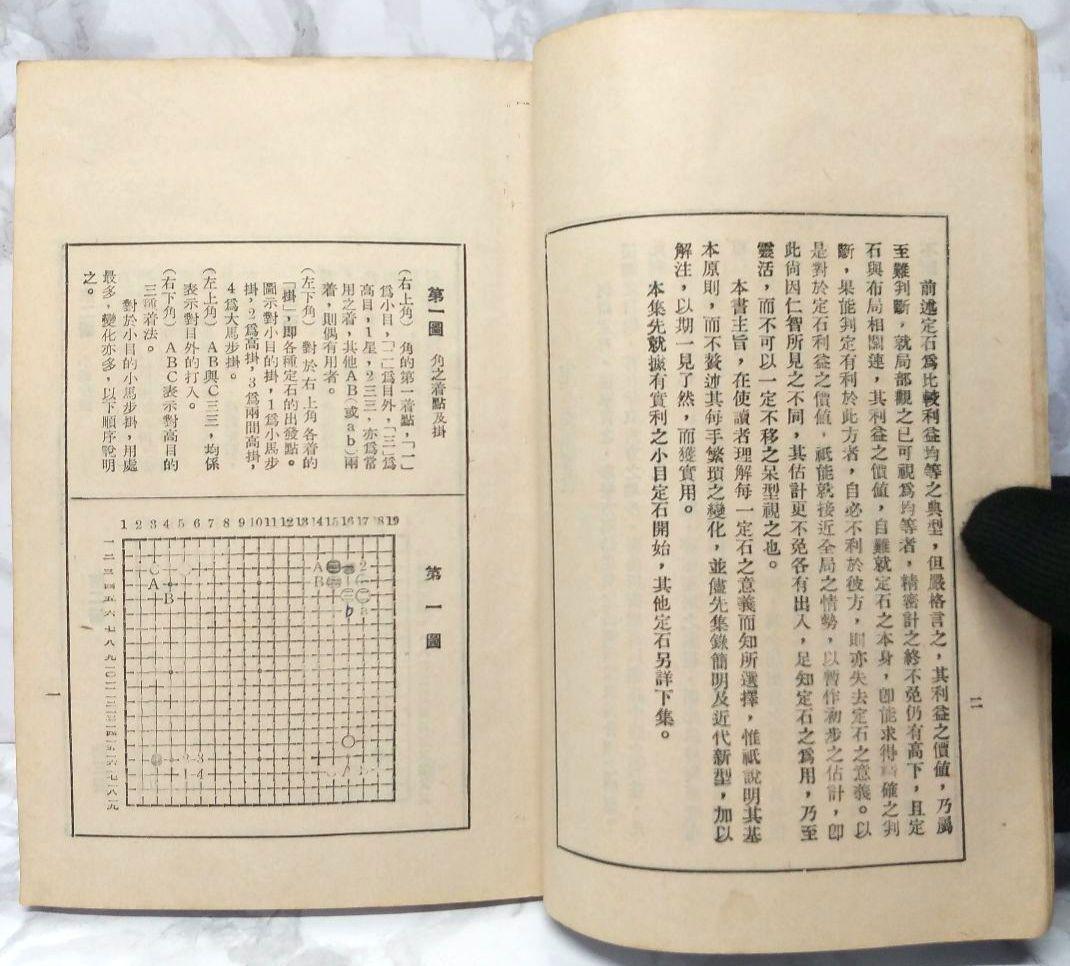 前述定石爲比較利益均等之典型，但嚴格言之，其利益之價值，乃屬
至難判斷，就局部觀之已可視爲均等者，精密計之終不免仍有高下，且定
石與布局相關連，其利益之價值，自難就定石之本身，卽能求得確之判
斷，果能判定有利於此方者，自必不利於彼方，則亦失去定石之意義。以
是對於定石利益之價值，祇能就接近全局之情勢，以暫作初步之估計，卽
此尙因仁智所見之不同，其估計更不免各有出入，足知定石之爲用，乃至
靈活，而不可以一定不移之呆型視之也。
本書主旨，在使讀者理解每一定石之意義而知所選擇，惟祇說明其基
本原則，而不贅述其每手繁瑣之變化，並儘先集錄簡明及近代新型，加以
解注，以期一見了然，而獲實用。
本集先就據有實利之小目定石開始，其他定石另詳下集。
二
第一圖　角之着點及掛
（右上角）角的第一着點，「一」
爲小目，「二」爲目外，「三」爲
高目，1星，2三三，亦爲常
用之着，其他AB（或ab）兩
着，則偶有用者。
（左下角）對於右上角各着的
「掛」，即各種定石的出發點。
圖示對小目的掛，1爲小馬步
掛，2爲高掛，3爲兩間高掛，
4爲大馬步掛。
（左上角）AB與C三三，均係
表示對目外的打入。
（右下角）ABC表示對高目的
三種着法。
對於小目的小馬步掛，用處
最多，變化亦多，以下順序說明
之。
第一圖
1 2 3 4 5 6 7 8 9 10 11 12 13 14 15 16 17 18 19
一二三四五六七八九
A
B
C
A
B
1
2
a
b
2 3
1 4
A
一